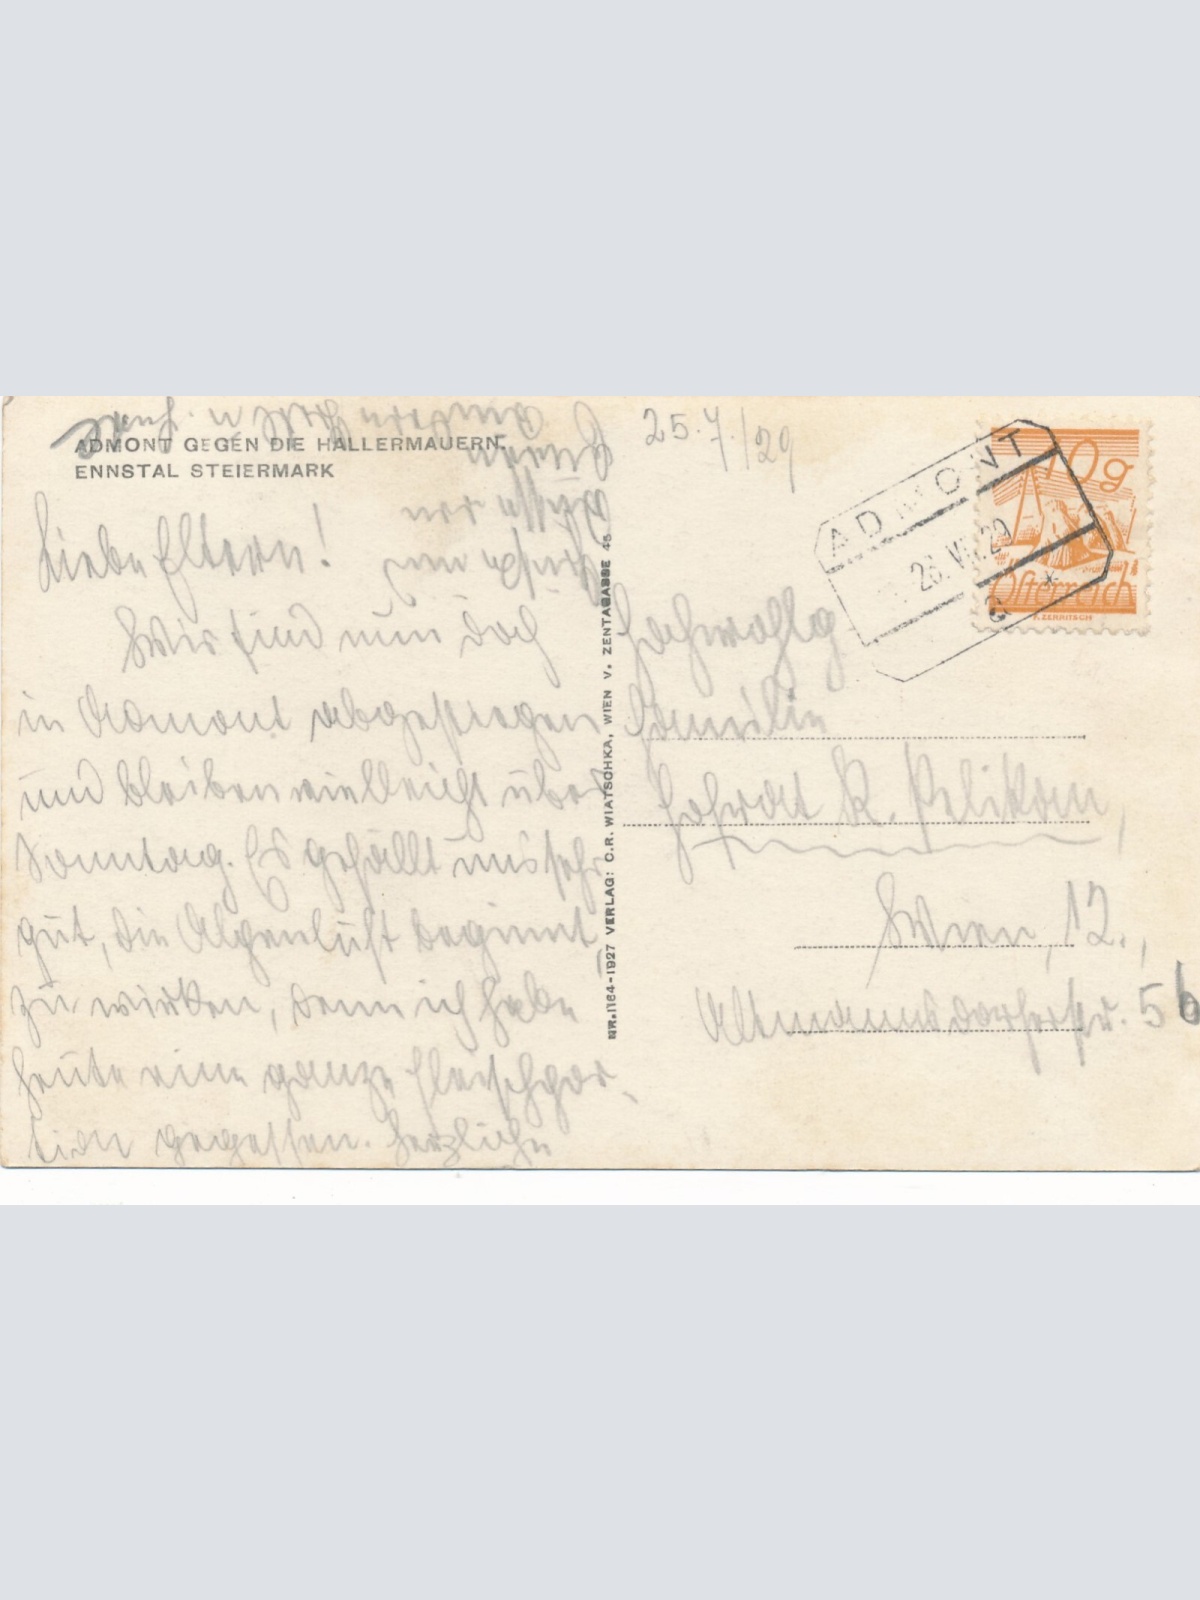 ADMONT GEGEN DIE HALLERMAUERN,
ENNSTAL STEIERMARK
Liebe Eltern!
Wir sind nun doch
in Admont abgestiegen
und bleiben vielleicht über
Sonntag. Es gefällt uns sehr
gut, die Alpenluft beginnt
zu wirken, denn ich habe
heute eine ganze Fleischpor-
tion gegessen. Herzliche
NR. 1164-1927 VERLAG: C. R. WIATSCHKA, WIEN V. ZENTAGASSE 45
25.7./29
ADMONT
26. VII. 29
10g
Österreich
Hochwohlg
Familie
Hofrat R. Pelikan,
Wien, 12.,
Altmannsdorferstr. 56